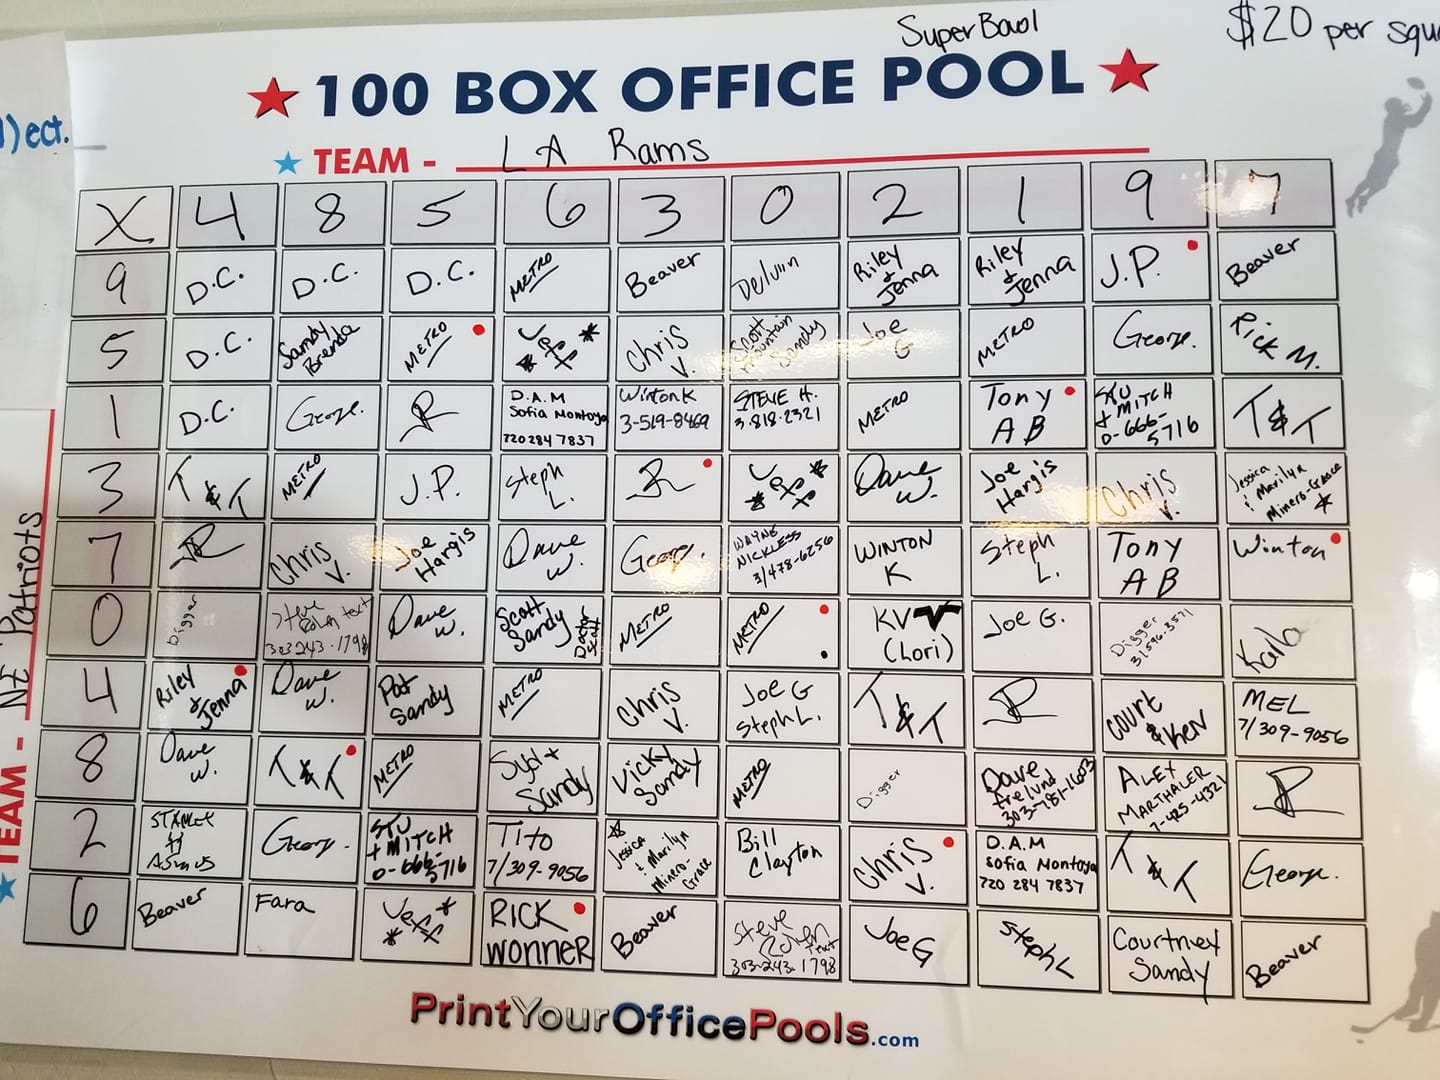 Super Bowl
$20 per squ
100 BOX OFFICE POOL
ect.
TEAM - LA Rams
TEAM - NE Patriots
X 4 8 5 6 3 0 2 1 9 7
9 D.C. D.C. D.C. METRO Beaver Delvin Riley & Jenna Riley & Jenna J.P. Beaver
5 D.C. Sandy Brenda METRO Jeff Chris V. Scott Mountain Sandy Joe G METRO George. Rick M.
1 D.C. George. R D.A.M Sofia Montoya 720 284 7837 Winton K 3-519-8469 STEVE H. 3.818.2321 METRO Tony A B STU + MITCH 0-666-5716 T&T
3 T&T METRO J.P. Steph L. R Jeff Dave W. Joe Hargis Chris V. Jessica & Marilyn Minero-Grace
7 R Chris V. Joe Hargis Dave W. George. WAYNE NICKLESS 3/478-6256 WINTON K Steph L. Tony A B Winton
0 Digger Steve text 303 243.1798 Dave W. Scott Sandy Doctor Scott METRO METRO KV (Lori) Joe G. Digger 31596-3571 Kaila
4 Riley & Jenna Dave W. Pat Sandy METRO Chris V. Joe G Steph L. T&T R Court & Ken MEL 7/309-9056
8 Dave W. T&T METRO Sybl + Sandy Vicky Sandy METRO Digger Dave Frelund 303-781-1603 ALEX MARTHALER 7-425-4321 R
2 George. STU + MITCH 0-666-5716 Tito 7/309-9056 Jessica & Marilyn Minero-Grace Bill Clayton Chris V. D.A.M Sofia Montoya 720 284 7837 T&T George.
6 Beaver Fara Jeff RICK WONNER Beaver Steve text 303-243.1798 Joe G Steph L Courtney Sandy Beaver
PrintYourOfficePools.com